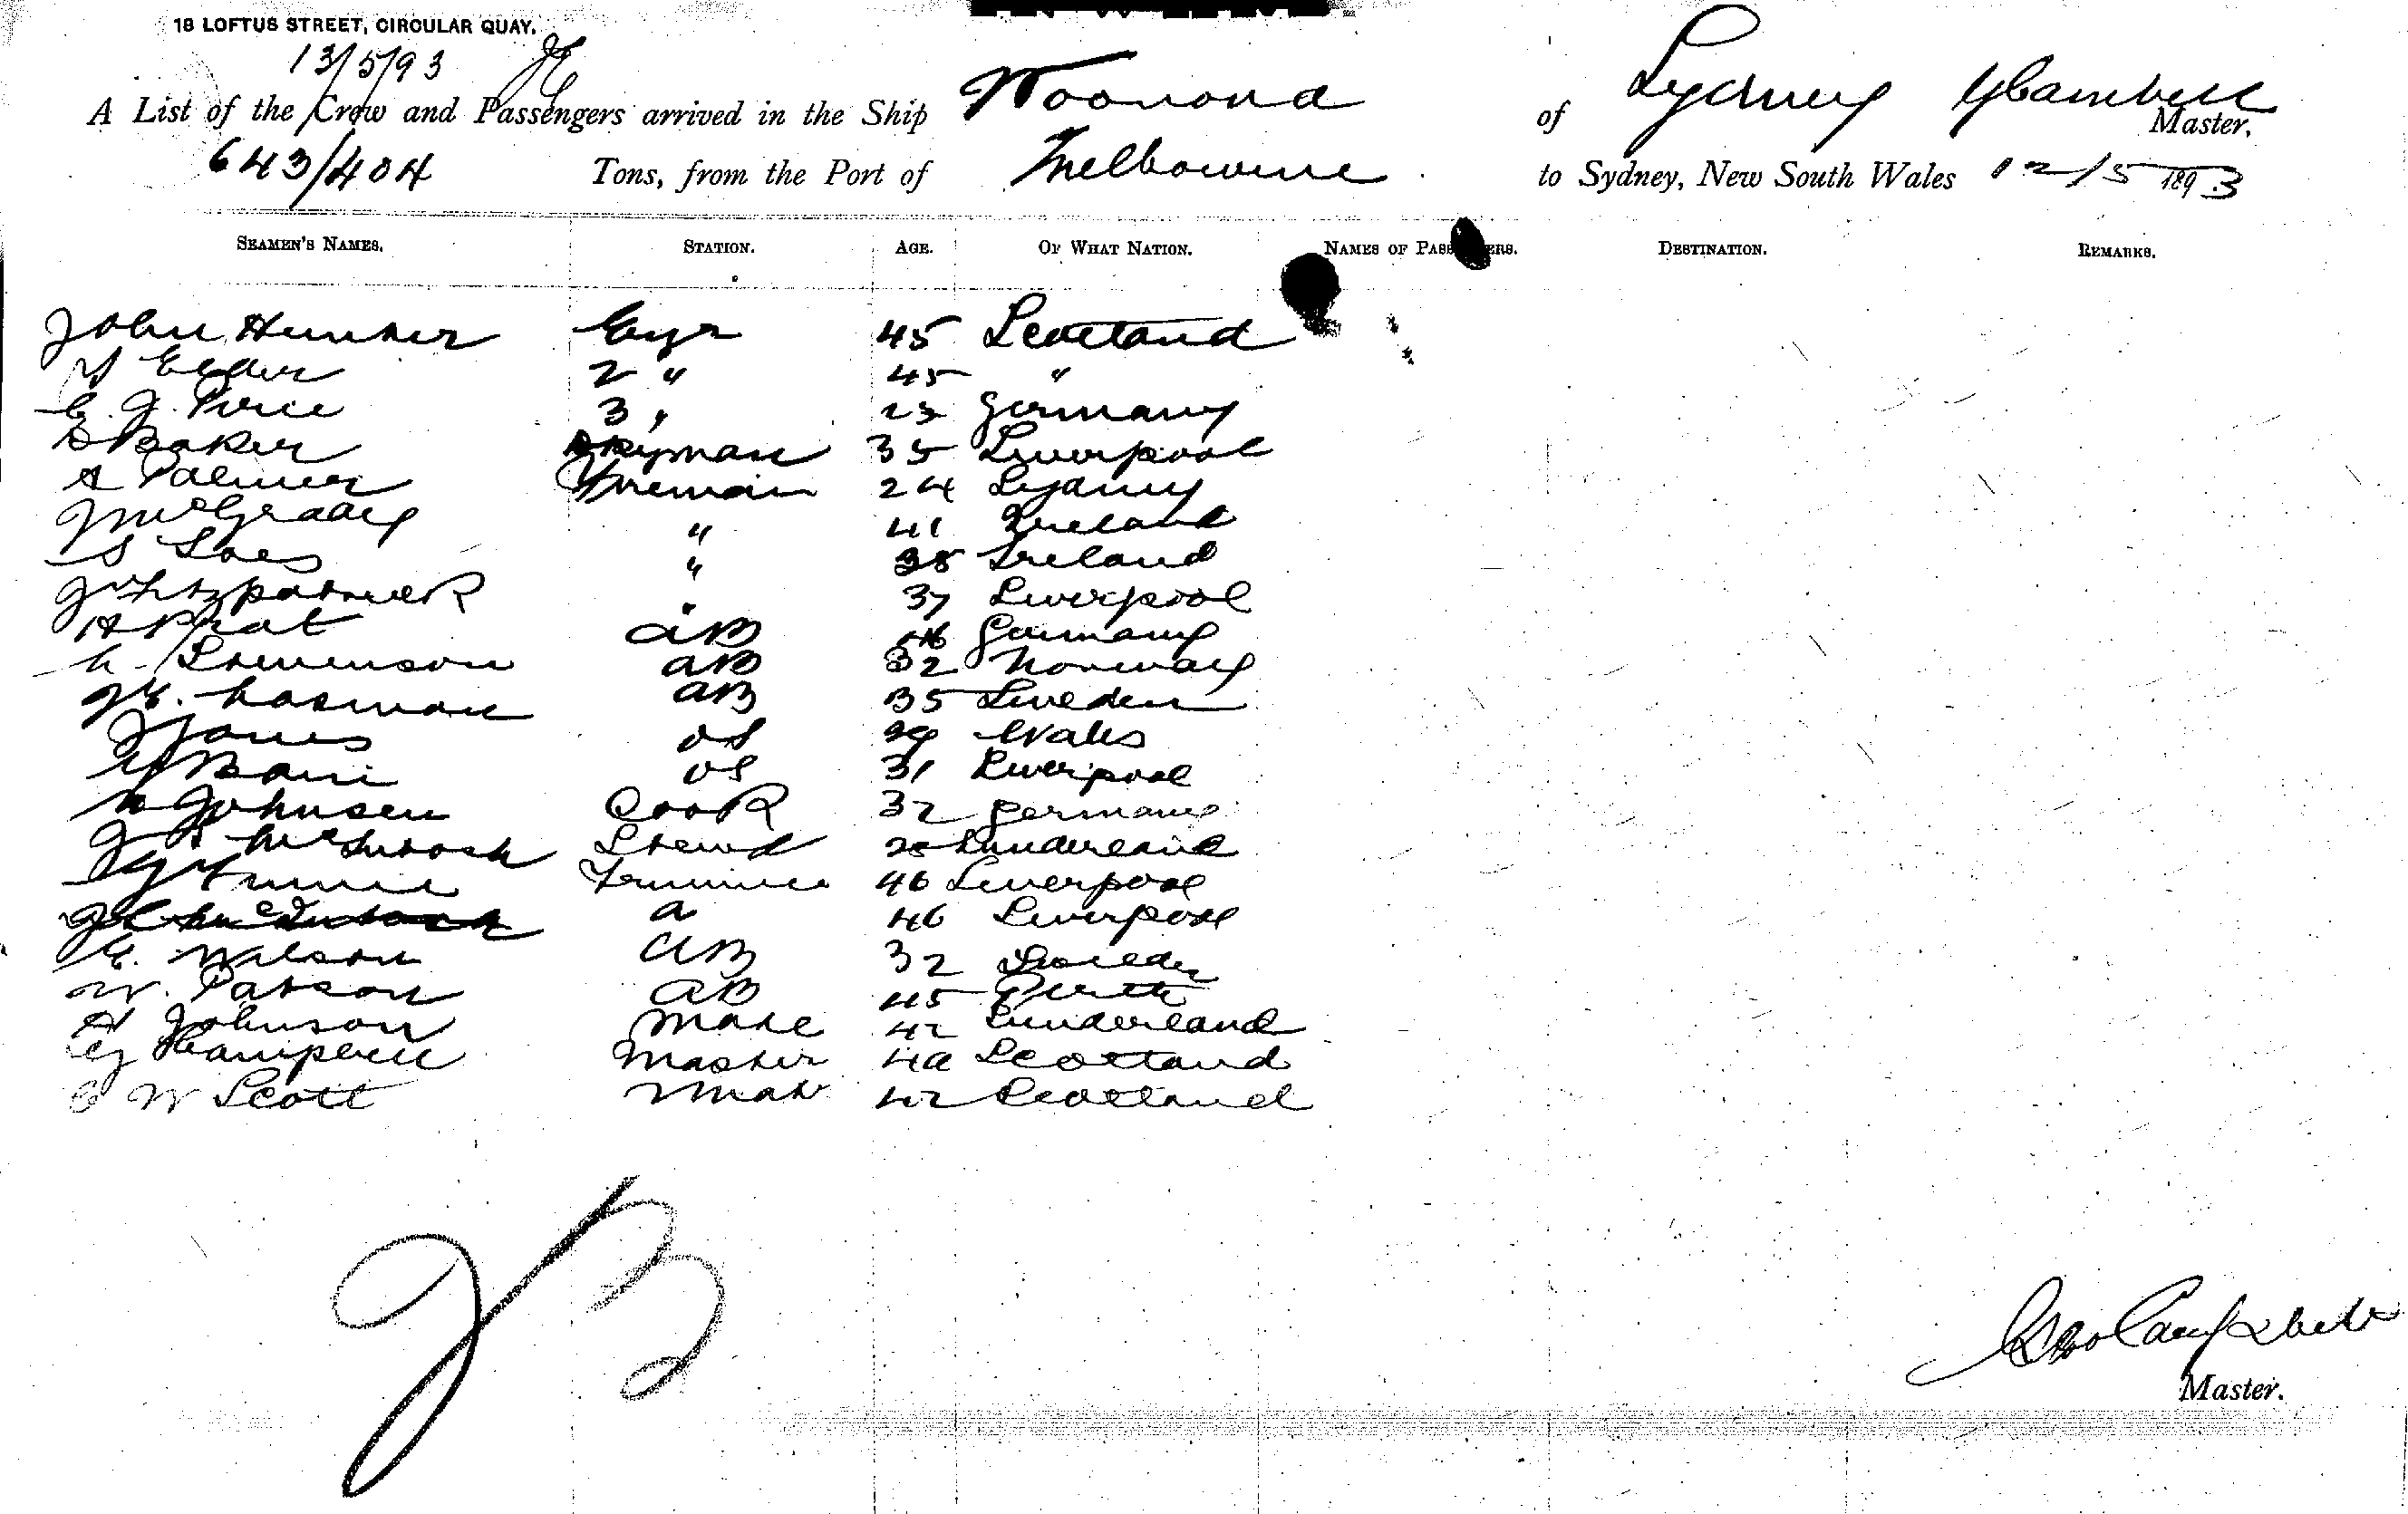 18 LOFTUS STREET, CIRCULAR QUAY.
13/5/93
A List of the Crew and Passengers arrived in the Ship Woonona of Sydney G Cambell Master,
643/404 Tons, from the Port of Melbourne to Sydney, New South Wales 12/5 1893
SEAMEN'S NAMES. STATION. AGE. OF WHAT NATION. NAMES OF PASSENGERS. DESTINATION. REMARKS.
John Hunter Engr 45 Scotland
Elder 2 " 45 "
J. 3 " 23 Germany
Baker Dkyman 35 Liverpool
A Palmer Fireman 24 Sydney
J McGrady " 41 Ireland
S Loes " 38 Ireland
J Fitzpatrick " 37 Liverpool
A Prat AB 46 Germany
Stevenson AB 32 Norway
AB 35 Sweden
J Jones OS 29 Wales
OS 31 Liverpool
Johnsen Cook 32 Germany
J R McIntosh Stewd 28 Sunderland
Trimmer 46 Liverpool
McIntosh a 46 Liverpool
Wilson AB 32 Sweden
W. Patson AB 45 Perth
A Johnson Mate 42 Sunderland
G Campbell Master 40 Scotland
W Scott Mate 42 Scotland
Geo Campbell
Master.